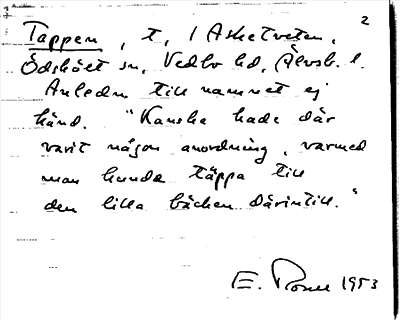 2
Tappen, t, i Asketveten,
Ödskölt sn, Vedbo hd, Älvsb. l.
Anledn till namnet ej
känd. "Kanske hade där
varit någon anordning, varmed
man kunde täppa till
den lilla bäcken därintill."
E. 1953